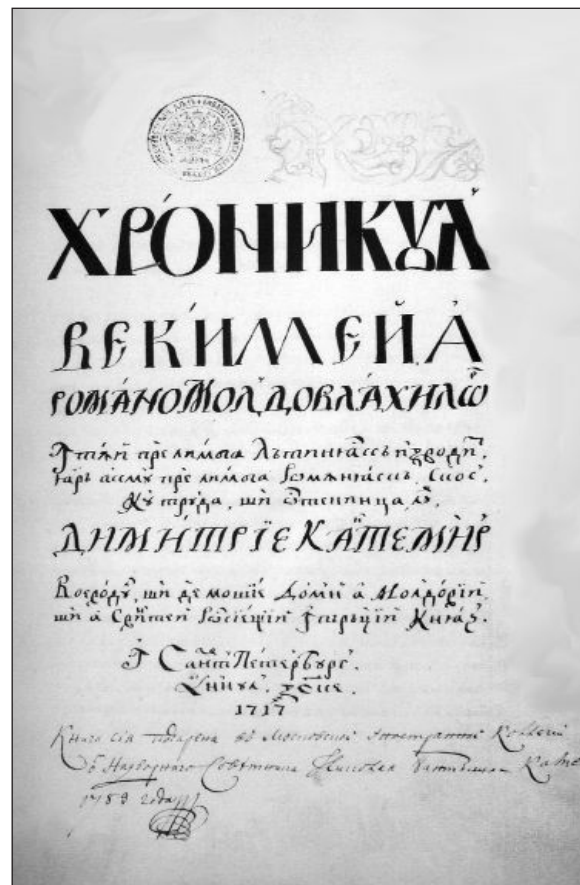 ХРО́НИКУЛ
ВЕКИ́МЕЙ А
РОМА́НО МОЛДОВЛА́ХИЛѠР
Ꙟтѫй пре лимба Лътинѣскъ изводит,
ꙗрь акмꙋ пре лимба Ромѫнѣскъ Скос.
Кꙋ трꙋда, ши ѡстенинца
ДИМИ́ТРЇЕ КАНТЕМИ́Р
Воеводꙋ, ши де мошїе Домн а Молдовїй,
ши а Сфинтей Рѡсїещїй Ꙟпърѫцїй Кнѧз.
Ꙟ Санкт Петербург.
1717
Книга сiя подарена въ Московской Иностранной Коллегiи
отъ Надворнаго Совѣтника Николая Бантыша Каме
1789 года